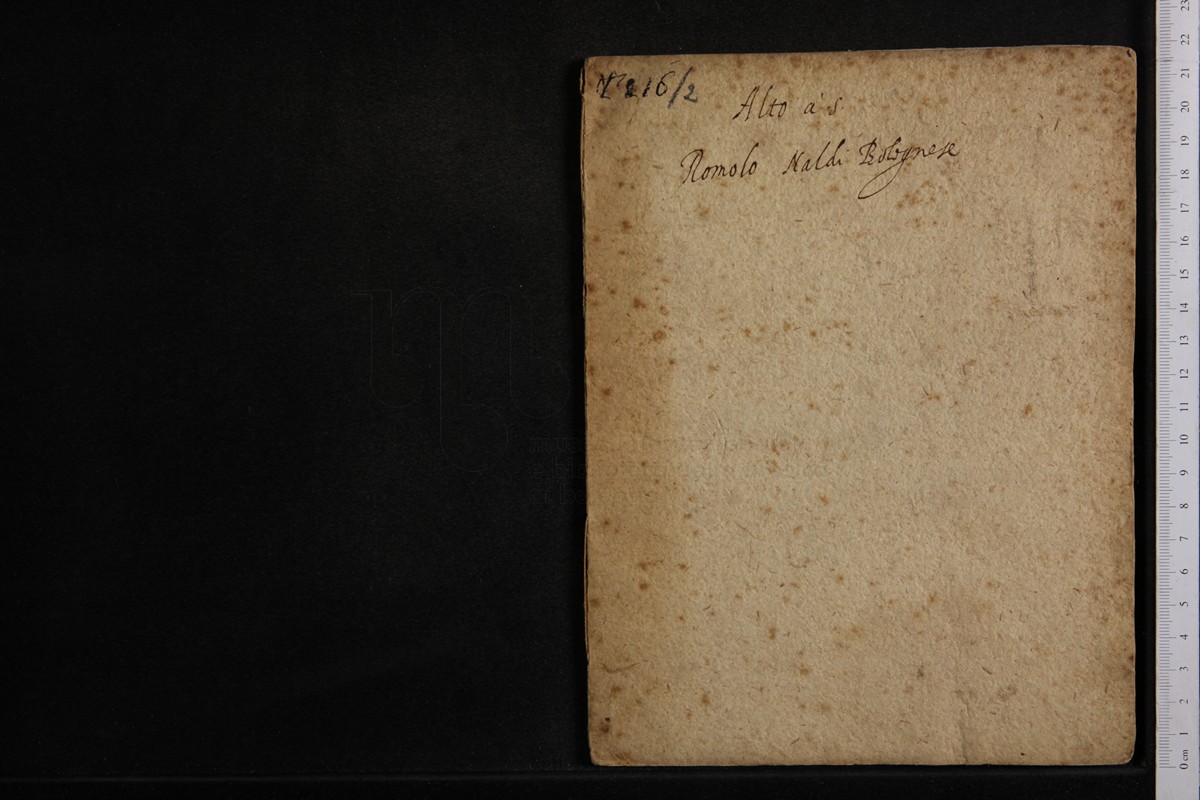 Nº 216/2
Alto à 5
Romolo Naldi Bolognese
23
22
21
20
19
18
17
16
15
14
13
12
11
10
9
8
7
6
5
4
3
2
1
0 cm